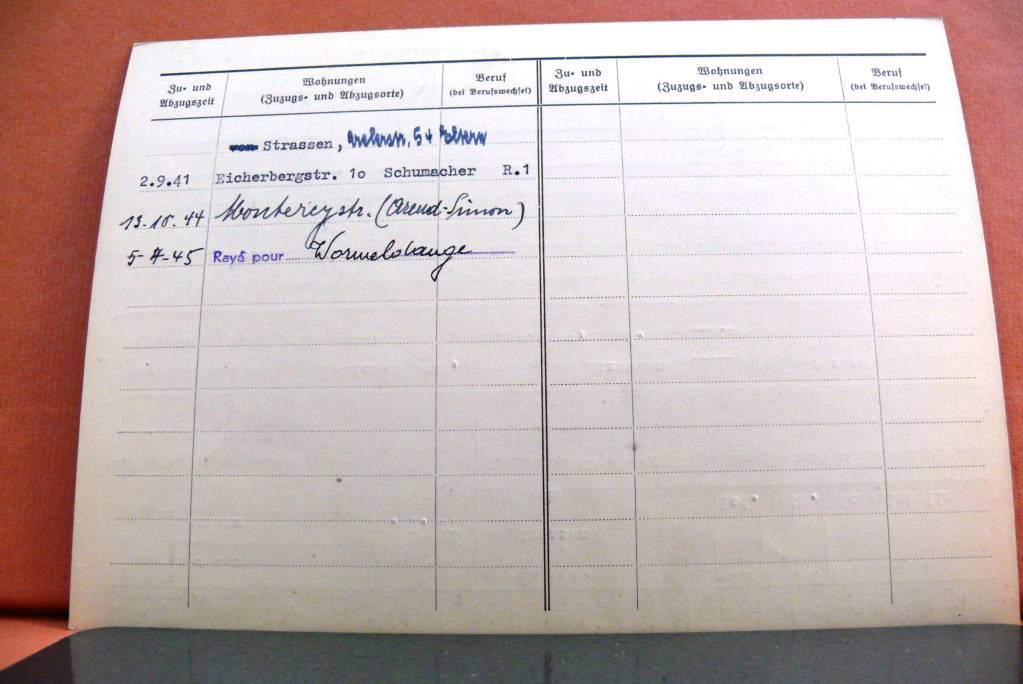 Zu- und Abzugszeit
Wohnungen
(Zuzugs- und Abzugsorte)
Beruf
(bei Berufswechsel)
Zu- und Abzugszeit
Wohnungen
(Zuzugs- und Abzugsorte)
Beruf
(bei Berufswechsel)
von Strassen, Arelerstr. 54 Eltern
2.9.41 Eicherbergstr. 1o Schumacher R.1
13-10-44 Montereystr. (Arend-Simon)
5-7-45 Rayé pour Wormeldange